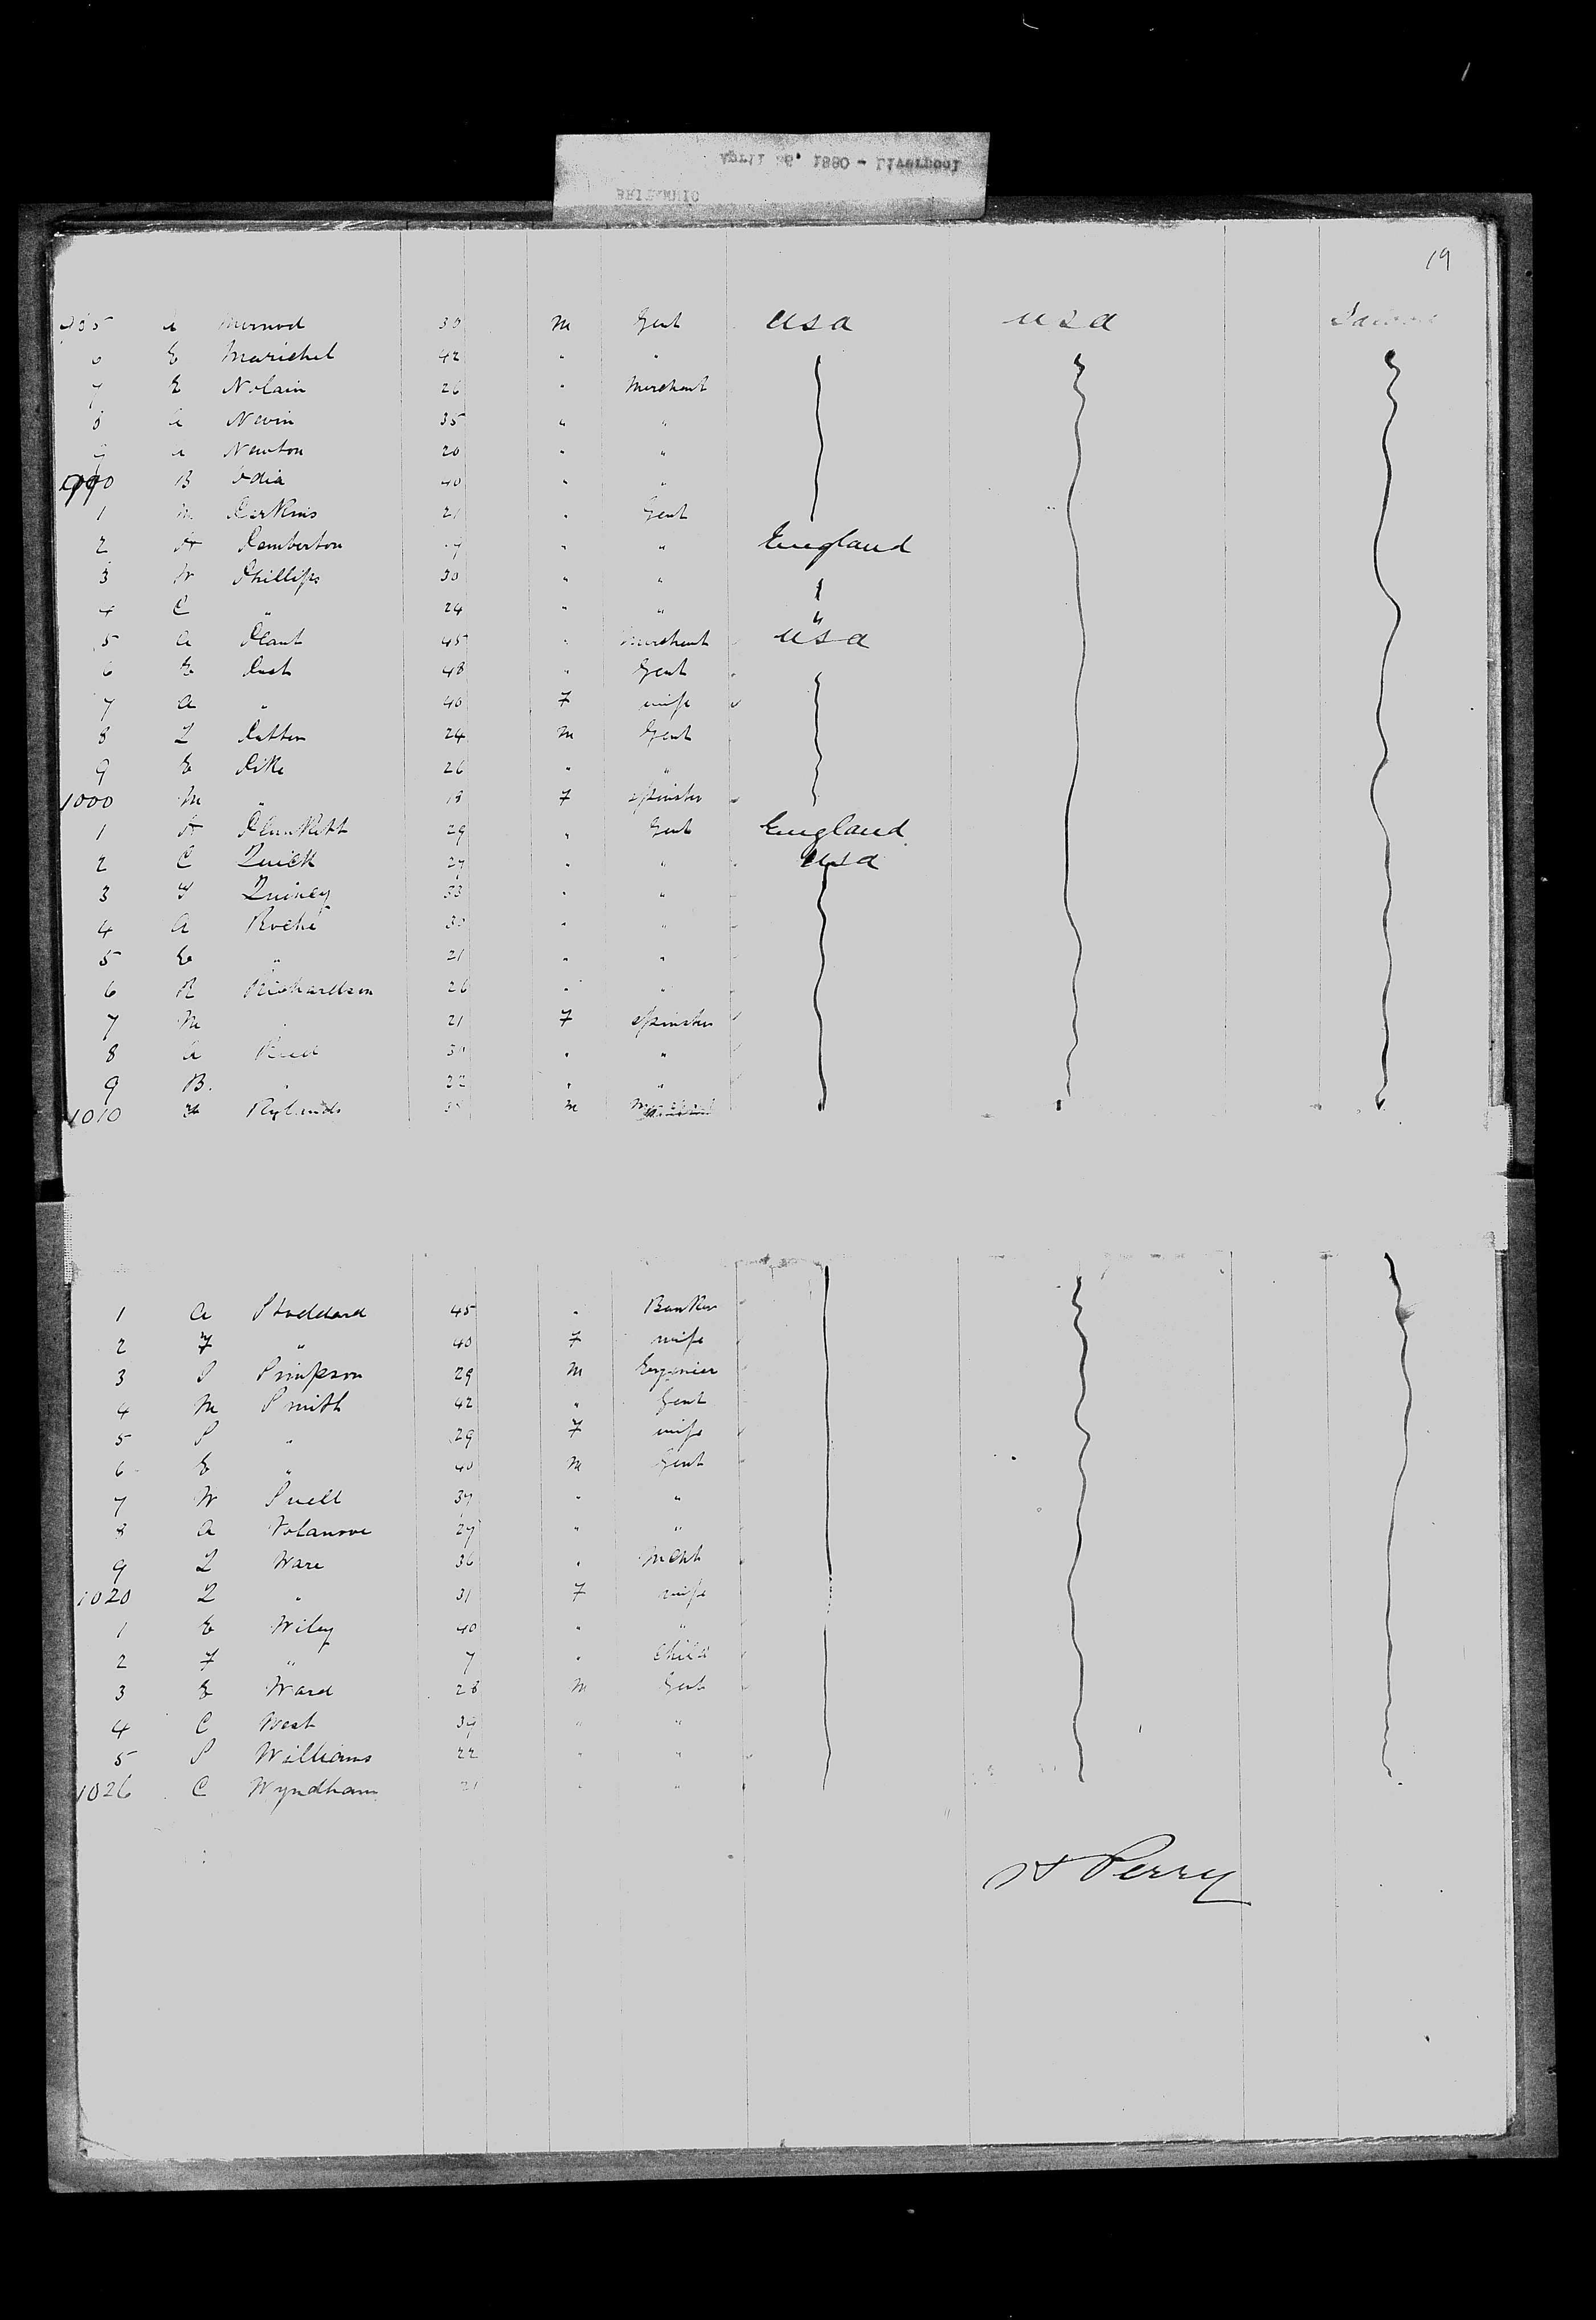 April 26. 1880 - Liverpool
BRITANNIC
19
985 A 30 m Gent USA USA Saloon
6 E Marichel 42 " "
7 E Nolain 26 " Merchant
8 A Nevin 35 " "
9 A Newton 20 " "
990 B Odia 40 " "
1 M Perkins 21 " Gent
2 H Pemberton " " England
3 W Phillips 30 " "
4 C " 24 " " "
5 A Plant 45 " Merchant USA
6 E 48 " Gent
7 A " 40 F wife
8 L Patten 24 m Gent
9 E Pike 26 " "
1000 M " 18 F spinster
1 H Plunkett 29 " Gent England
2 C Quick 27 " " USA
3 Quincy 33 " "
4 A Roche 30 " "
5 E " 21 " "
6 R Richardson 26 " "
7 M " 21 F spinster
8 A Reed " "
9 B. " 22 " "
1010 Rylands 35 m
1 A Stoddard 45 " Banker
2 F " 40 F wife
3 S Simpson 29 m Engenier
4 M Smith 42 " Gent
5 S " 29 F wife
6 E " 40 m Gent
7 W Snell 37 " "
8 A Volanove 27 " "
9 L Ware 36 " Mcht
1020 L " 31 F wife
1 E Wiley 40 " "
2 F " 7 " Child
3 E Ward 28 m Gent
4 C West 39 " "
5 S Williams 22 " "
1026 C Wyndham 21 " "
H Perry